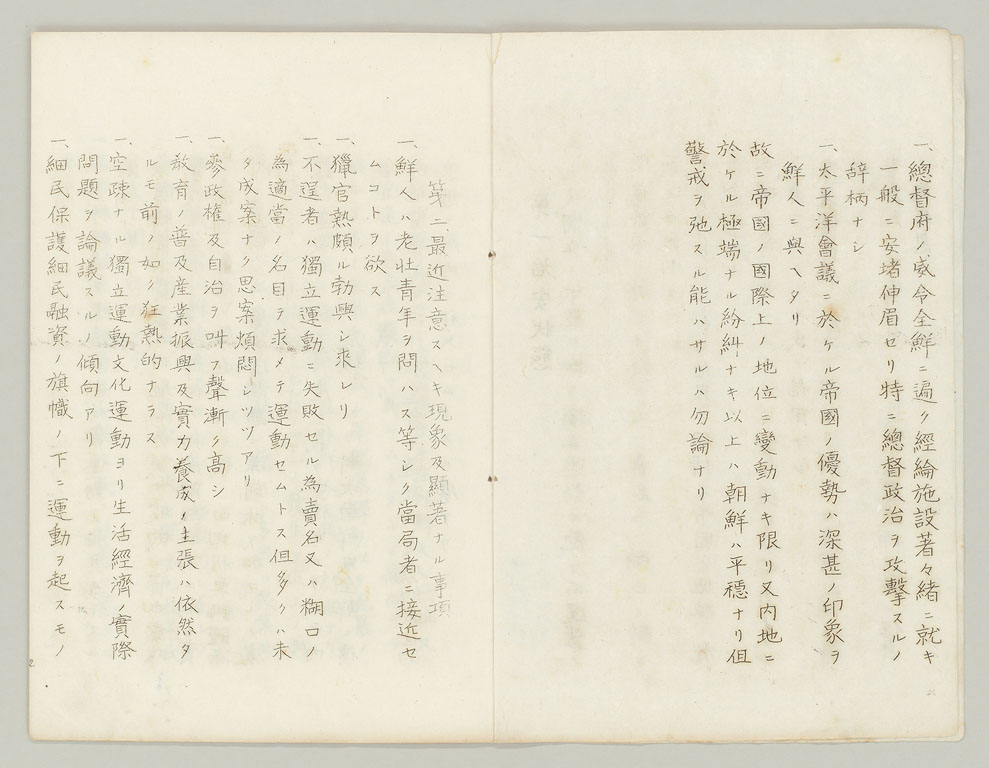 一、總督府ノ威令全鮮ニ遍ク經綸施設著々緒ニ就キ
一般ニ安堵伸眉セリ特ニ總督政治ヲ攻擊スルノ
辞柄ナシ
一、太平洋會議ニ於ケル帝國ノ優勢ハ深甚ノ印象ヲ
鮮人ニ與ヘタリ
故ニ帝國ノ國際上ノ地位ニ變動ナキ限リ又内地ニ
於ケル極端ナル紛糾ナキ以上ハ朝鮮ハ平穩ナリ但
警戒ヲ弛スル能ハサルハ勿論ナリ
第二、最近注意スヘキ現象及顯著ナル事項
一、鮮人ハ老壯青年ヲ問ハス等シク當局者ニ接近セ
ムコトヲ欲ス
一、獵官熱頗ル勃興シ來レリ
一、不逞者ハ獨立運動ニ失敗セル為賣名又ハ糊口ノ
為適當ノ名目ヲ求メテ運動セムトス但多クハ未
タ成案ナク思案煩悶シツツアリ
一、參政權及自治ヲ叫フ聲漸ク高シ
一、敎育ノ普及産業振興及實力養成ノ主張ハ依然タ
ルモ前ノ如ク狂熱的ナラス
一、空疎ナル獨立運動文化運動ヨリ生活經濟ノ實際
問題ヲ論議スルノ傾向アリ
一、細民保護細民融資ノ旗幟ノ下ニ運動ヲ起スモノ